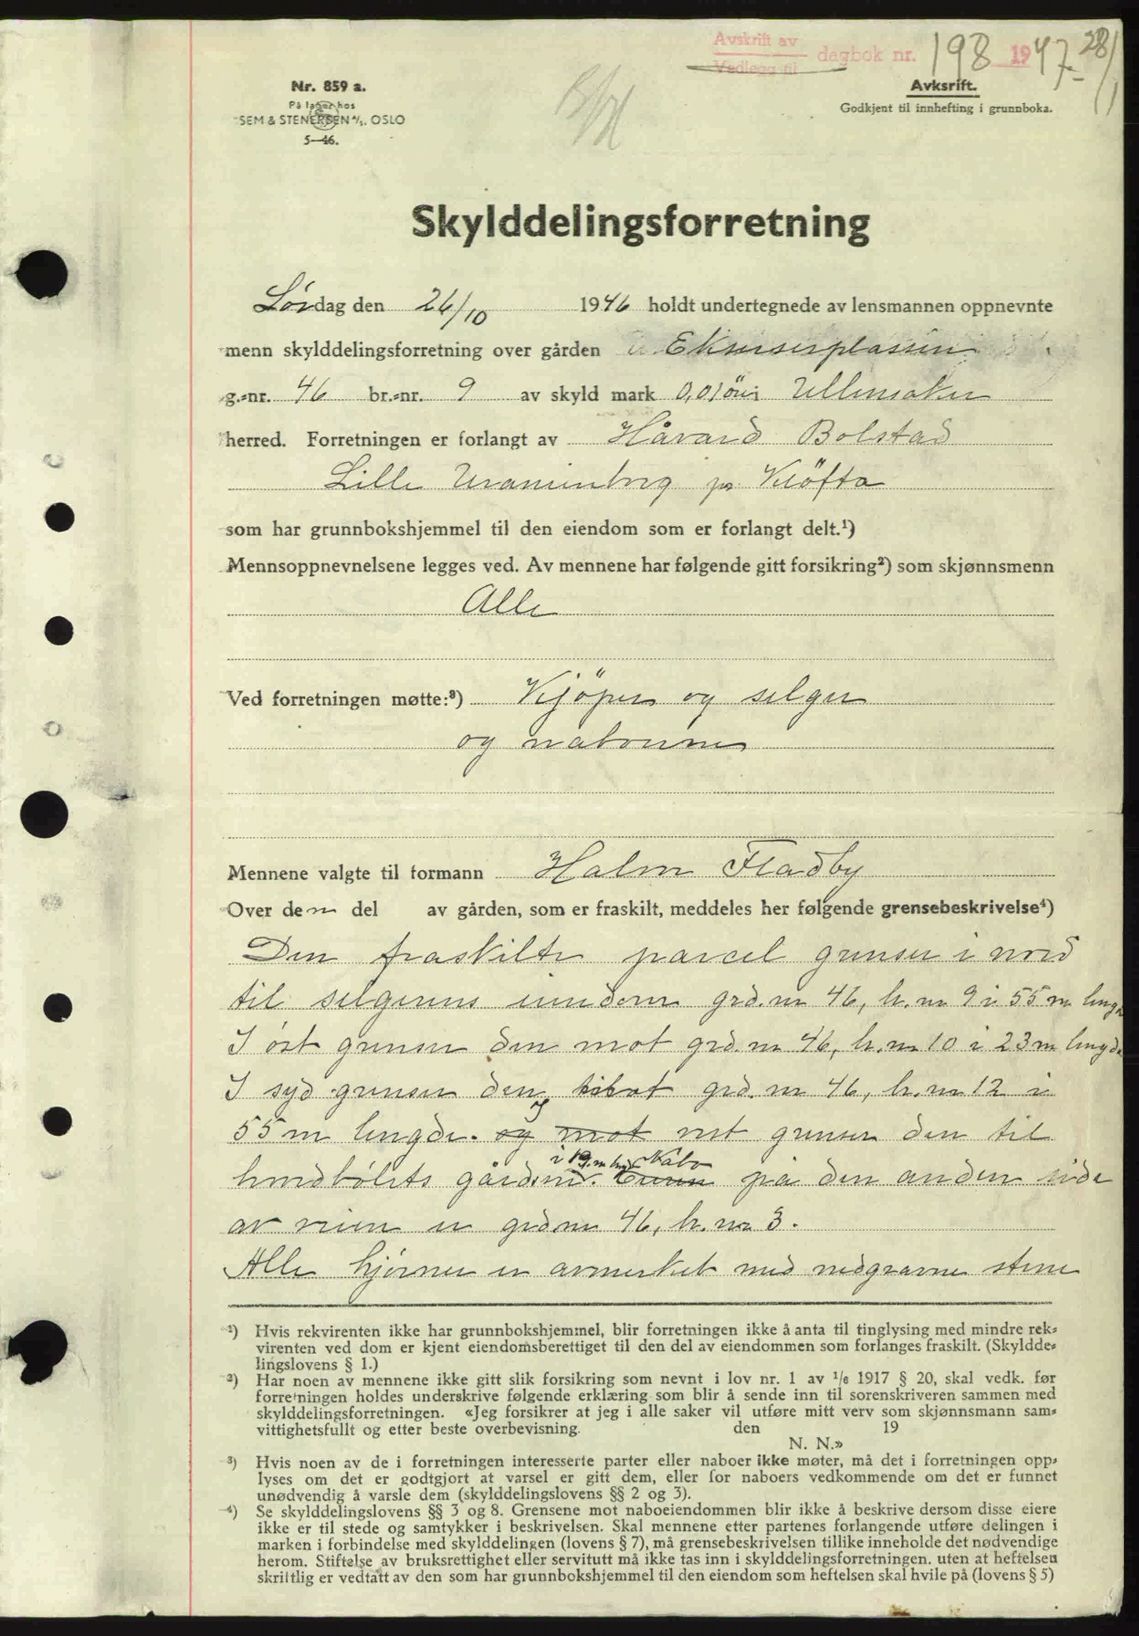 Avskrift av
Vedlegg til dagbok nr. 198 1947 - 28/1
Nr. 859 a.
På lager hos
SEM & STENERSEN A/S. OSLO
5—46.
Avksrift.
Godkjent til innhefting i grunnboka.
Skylddelingsforretning
Lørdag den 26/10 1946 holdt undertegnede av lensmannen oppnevnte
menn skylddelingsforretning over gården Ekserserplassen
g.-nr. 46 br.-nr. 9 av skyld mark 0,01 øre i Ullensaker
herred. Forretningen er forlangt av Håvard Bolstad
Lille Uranienborg pr Kløfta
som har grunnbokshjemmel til den eiendom som er forlangt delt.¹)
Mennsoppnevnelsene legges ved. Av mennene har følgende gitt forsikring²) som skjønnsmenn
Alle
Ved forretningen møtte:³) Kjøper og selger
og naboerne
Mennene valgte til formann Halm Fladby
Over den del av gården, som er fraskilt, meddeles her følgende grensebeskrivelse⁴)
Den fraskilte parcel grenser i nord
til selgerens eiendom grd. nr 46, br. nr 9 i 55 m lengde
I øst grenser den mot grd. nr 46, br. nr 10 i 23 m lengde
I syd grenser den grd. nr 46, br. nr 12 i
55 m lengde. og mot vest grenser den til
hovedbølets gårdsvei. i 19 m lengde Nabo på den anden side
av veien er grd nr 46, br. nr 3.
Alle hjørner er avmerket med nedgravne stene
¹) Hvis rekvirenten ikke har grunnbokshjemmel, blir forretningen ikke å anta til tinglysing med mindre rek-
virenten ved dom er kjent eiendomsberettiget til den del av eiendommen som forlanges fraskilt. (Skyldde-
lingslovens § 1.)
²) Har noen av mennene ikke gitt slik forsikring som nevnt i lov nr. 1 av ¹/₆ 1917 § 20, skal vedk. før
forretningen holdes underskrive følgende erklæring som blir å sende inn til sorenskriveren sammen med
skylddelingsforretningen. «Jeg forsikrer at jeg i alle saker vil utføre mitt verv som skjønnsmann sam-
vittighetsfullt og etter beste overbevisning. den 19
N. N.»
³) Hvis noen av de i forretningen interesserte parter eller naboer ikke møter, må det i forretningen opp-
lyses om det er godtgjort at varsel er gitt dem, eller for naboers vedkommende om det er funnet
unødvendig å varsle dem (skylddelingslovens §§ 2 og 3).
⁴) Se skylddelingslovens §§ 3 og 8. Grensene mot naboeiendommen blir ikke å beskrive dersom disse eiere
ikke er til stede og samtykker i beskrivelsen. Skal mennene etter partenes forlangende utføre delingen i
marken i forbindelse med skylddelingen (lovens § 7), må grensebeskrivelsen tillike inneholde det nødvendige
herom. Stiftelse av bruksrettighet eller servitutt må ikke tas inn i skylddelingsforretningen. uten at heftelsen
skriftlig er vedtatt av den som har grunnbokshjemmel til den eiendom som heftelsen skal hvile på (lovens § 5)